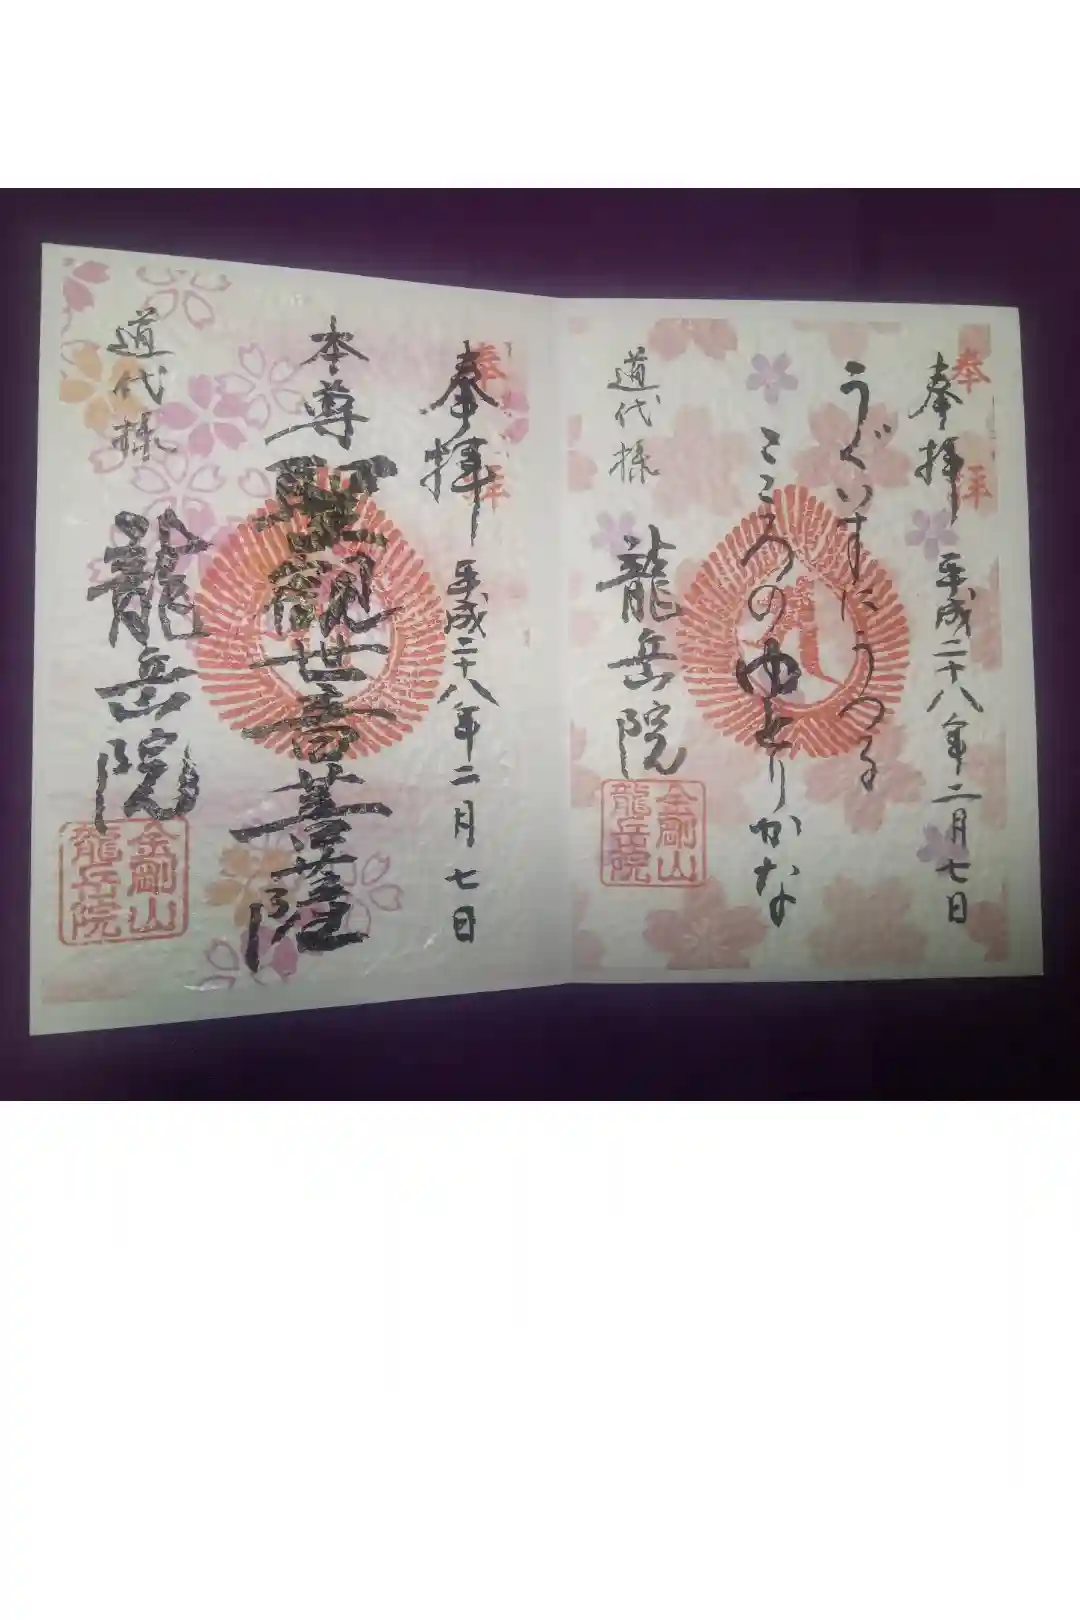 奉拝
奉拝 平成二十八年二月七日
うぐいすにうつる
こころのゆとりかな
道代様
龍岳院
金剛山
龍岳院
奉拝
奉拝 平成二十八年二月七日
本尊 聖観世音菩薩
道代様
龍岳院
金剛山
龍岳院